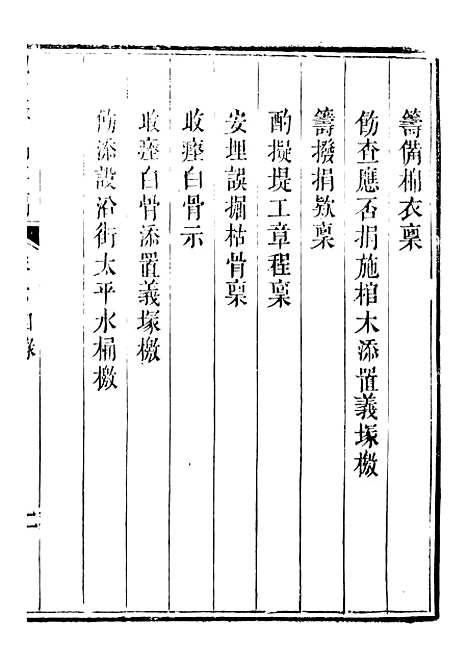 籌備棉衣稟
飭查應否捐施棺木添置義塚檄
籌撥捐欵稟
酌擬堤工章程稟
安埋誤掘枯骨稟
收瘞白骨示
收瘞白骨添置義塚檄
飭添設沿街太平水桶檄